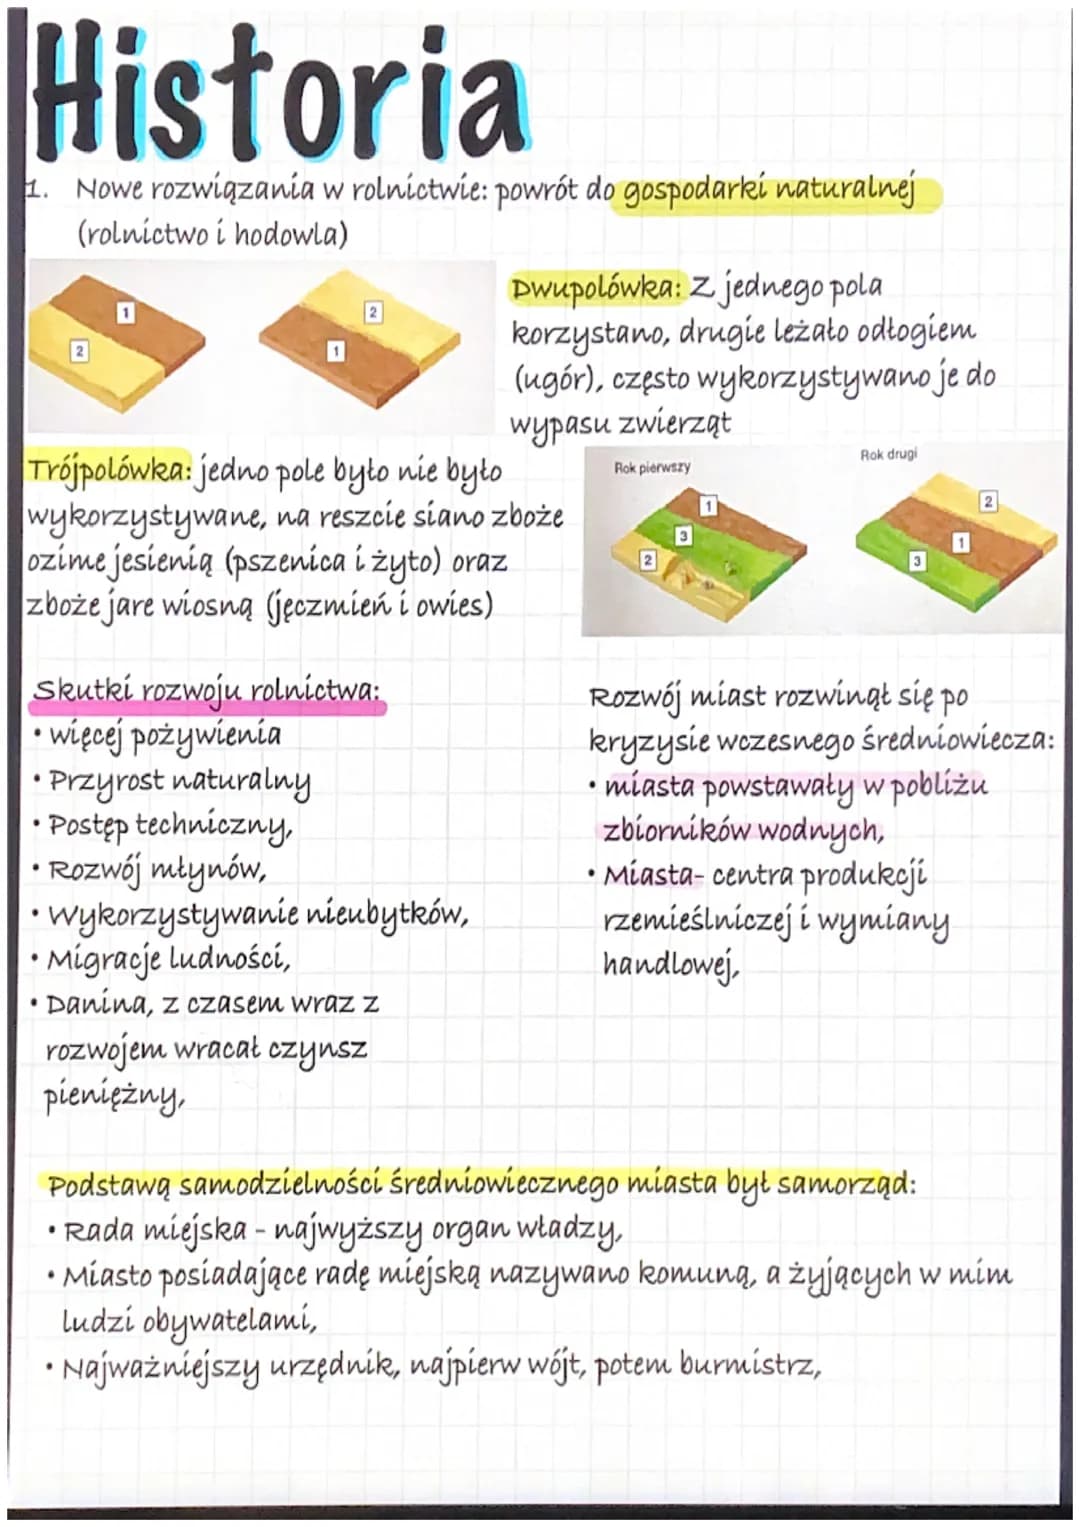 Historia
1. Nowe rozwiązania w rolnictwie: powrót do gospodarki naturalnej
(rolnictwo i hodowla)
1
2
2
1
Dwupolówka: Z jednego pola
korzystano, drugie leżało odłogiem
(ugór), często wykorzystywano je do
wypasu zwierząt
Trójpolówka: jedno pole było nie było
wykorzystywane, na reszcie siano zboże
ozime jesienią (pszenica i żyto) oraz
zboże jare wiosną (jęczmień i owies)
Rok pierwszy
1
3
2
Rok drugi
2
1
3
Skutki rozwoju rolnictwa:
• więcej pożywienia
• Przyrost naturalny
• Postęp techniczny,
• Rozwój młynów,
• Wykorzystywanie nieubytków,
• Migracje ludności,
• Danina, z czasem wraz z
rozwojem wracał czynsz
pieniężny,
Rozwój miast rozwinął się po
kryzysie wczesnego średniowiecza:
• miasta powstawały w pobliżu
zbiorników wodnych,
• Miasta- centra produkcji
rzemieślniczej i wymiany
handlowej,
Podstawą samodzielności średniowiecznego miasta był samorząd:
• Rada miejska - najwyższy organ władzy,
• Miasto posiadające radę miejską nazywano komuną, a żyjących w mim
ludzi obywatelami,
• Najważniejszy urzędnik, najpierw wójt, potem burmistrz,